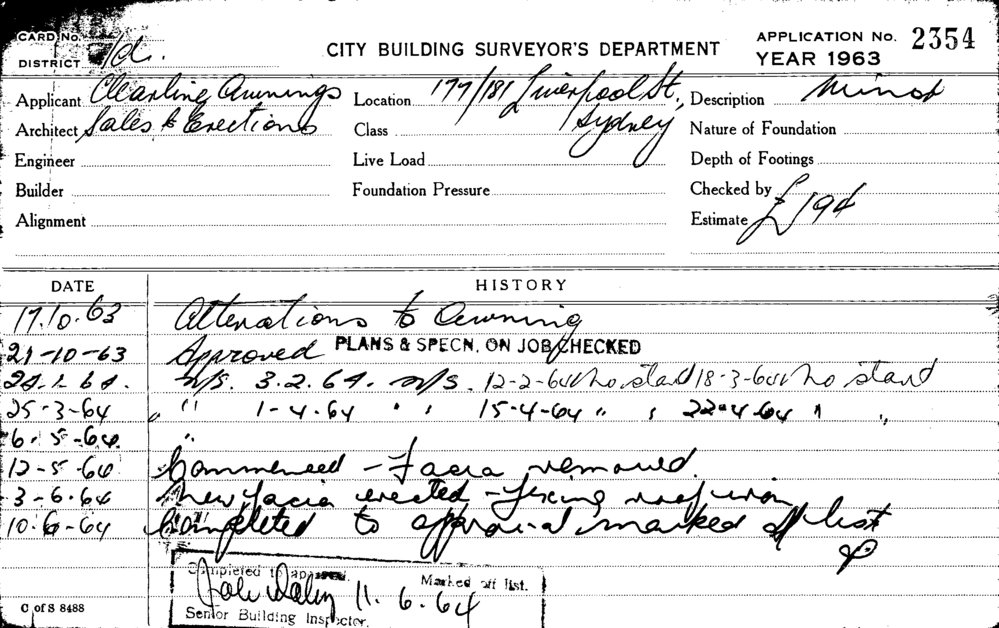 CARD No.
DISTRICT
CITY BUILDING SURVEYOR'S DEPARTMENT
APPLICATION No. 2354
YEAR 1963
Applicant Clearline Awnings Location 177/181 Liverpool St., Description Minor
Architect Sales & Erections Class Sydney Nature of Foundation
Engineer Live Load Depth of Footings
Builder Foundation Pressure Checked by
Alignment Estimate £194
DATE HISTORY
17.10.63 Alterations to Awning
21-10-63 Approved PLANS & SPECN. ON JOB CHECKED
n/s. 3.2.64. n/s. 12-2-64 No start 18-3-64 No start
25-3-64 " " 1-4-64 " " 15-4-64 " " 22-4-64 " "
6.5-64. "
12-5-64 Commenced - Facia removed.
3-6-64 New facia erected - fixing roof iron
10-6-64 Completed to approval marked off list
Completed to approval. Marked off list.
11.6.64
Senior Building Inspector.
C of S 8488